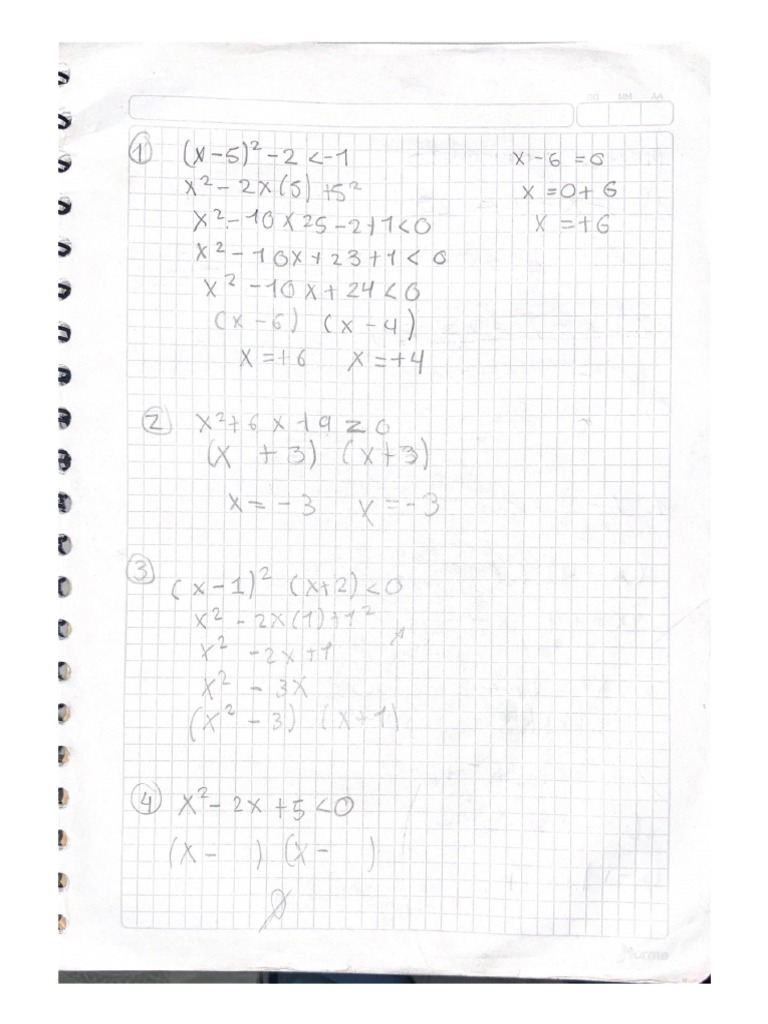 DD MM AA
① (x-5)² - 2 < -1
x² - 2x(5) + 5²
x² - 10x 25 - 2 + 1 < 0
x² - 10x + 23 + 1 < 0
x² - 10x + 24 < 0
(x - 6) (x - 4)
x = +6 x = +4
x - 6 = 0
x = 0 + 6
x = +6
② x² + 6x + 9 ≥ 0
(x + 3) (x + 3)
x = -3 x = -3
③ (x-1)² (x+2) < 0
x² - 2x(1) + 1²
x² - 2x + 1
x² - 3x
(x² - 3) (x + 1)
④ x² - 2x + 5 < 0
(x - ) (x - )
∅
Norma